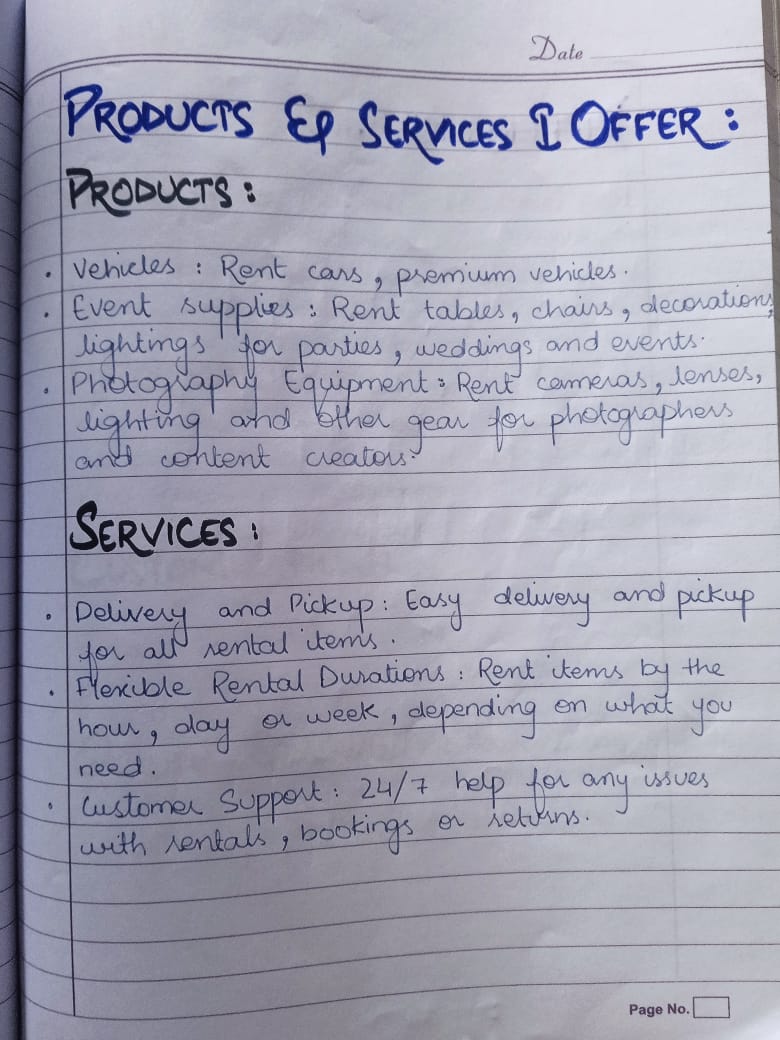 Date
PRODUCTS & SERVICES I OFFER :
PRODUCTS :
• Vehicles : Rent cars, premium vehicles.
• Event supplies : Rent tables, chairs, decoration,
lightings for parties, weddings and events.
• Photography Equipment : Rent cameras, lenses,
lighting and other gear for photographers
and content creators.
SERVICES :
• Delivery and Pickup : Easy delivery and pickup
for all rental items.
• Flexible Rental Durations : Rent items by the
hour, day or week, depending on what you
need.
• Customer Support : 24/7 help for any issues
with rentals, bookings or returns.
Page No.